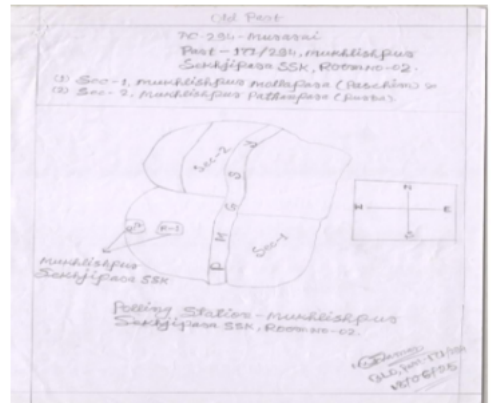 Old Part
AC-294-Murarai
Part-177/294, Mukhlishpur
Sekhjipara SSK, Room No-02.
(1) Sec-1, Mukhlishpur Mollapara (Paschim)
(2) Sec-2, Mukhlishpur Pathanpara (Purba)
Sec-2
P M G S Y
Sec-1
R-1
N
W E
S
Mukhlishpur
Sekhjipara SSK
Polling Station - Mukhlishpur
Sekhjipara SSK, Room No-02.